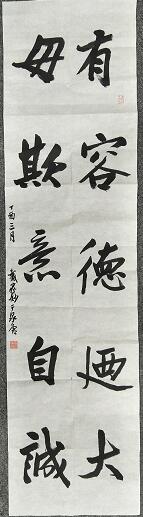 有容德迺大
毋欺意自誠
丁酉三月